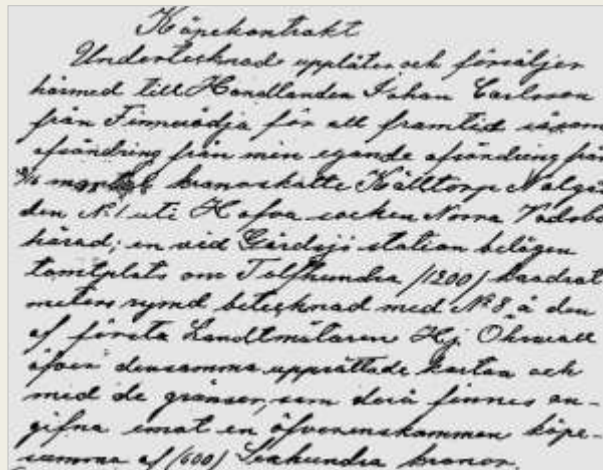 Köpekontrakt
Undertecknad upplåter och försäljer
härmed till Handlanden Johan Carlsson
från Finnerödja för all framtid såsom
afsöndring från min egande afsöndring från
mantal kronoskatte Källtorp Nolgår
den N:1 uti Hofva socken Norra Vadsbo
härad; en vid Gårdsjö station belägen
tomtplats om Tolfhundra /1200/ kvadrat
meters rymd betecknad med N:8 å den
af förste Landtmätaren Hj. Öhrwall
öfver densamma upprättade kartan och
med de gränser, som derå finnes an-
gifna emot en öfverenskommen köpe-
summa af /600/ Sexhundra kronor